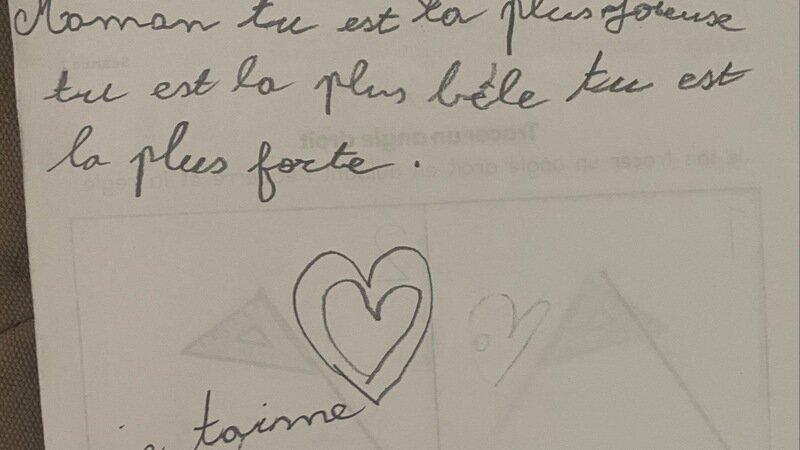 Maman tu est la plus
tu est la plus bèle tu est
la plus forte.
taime